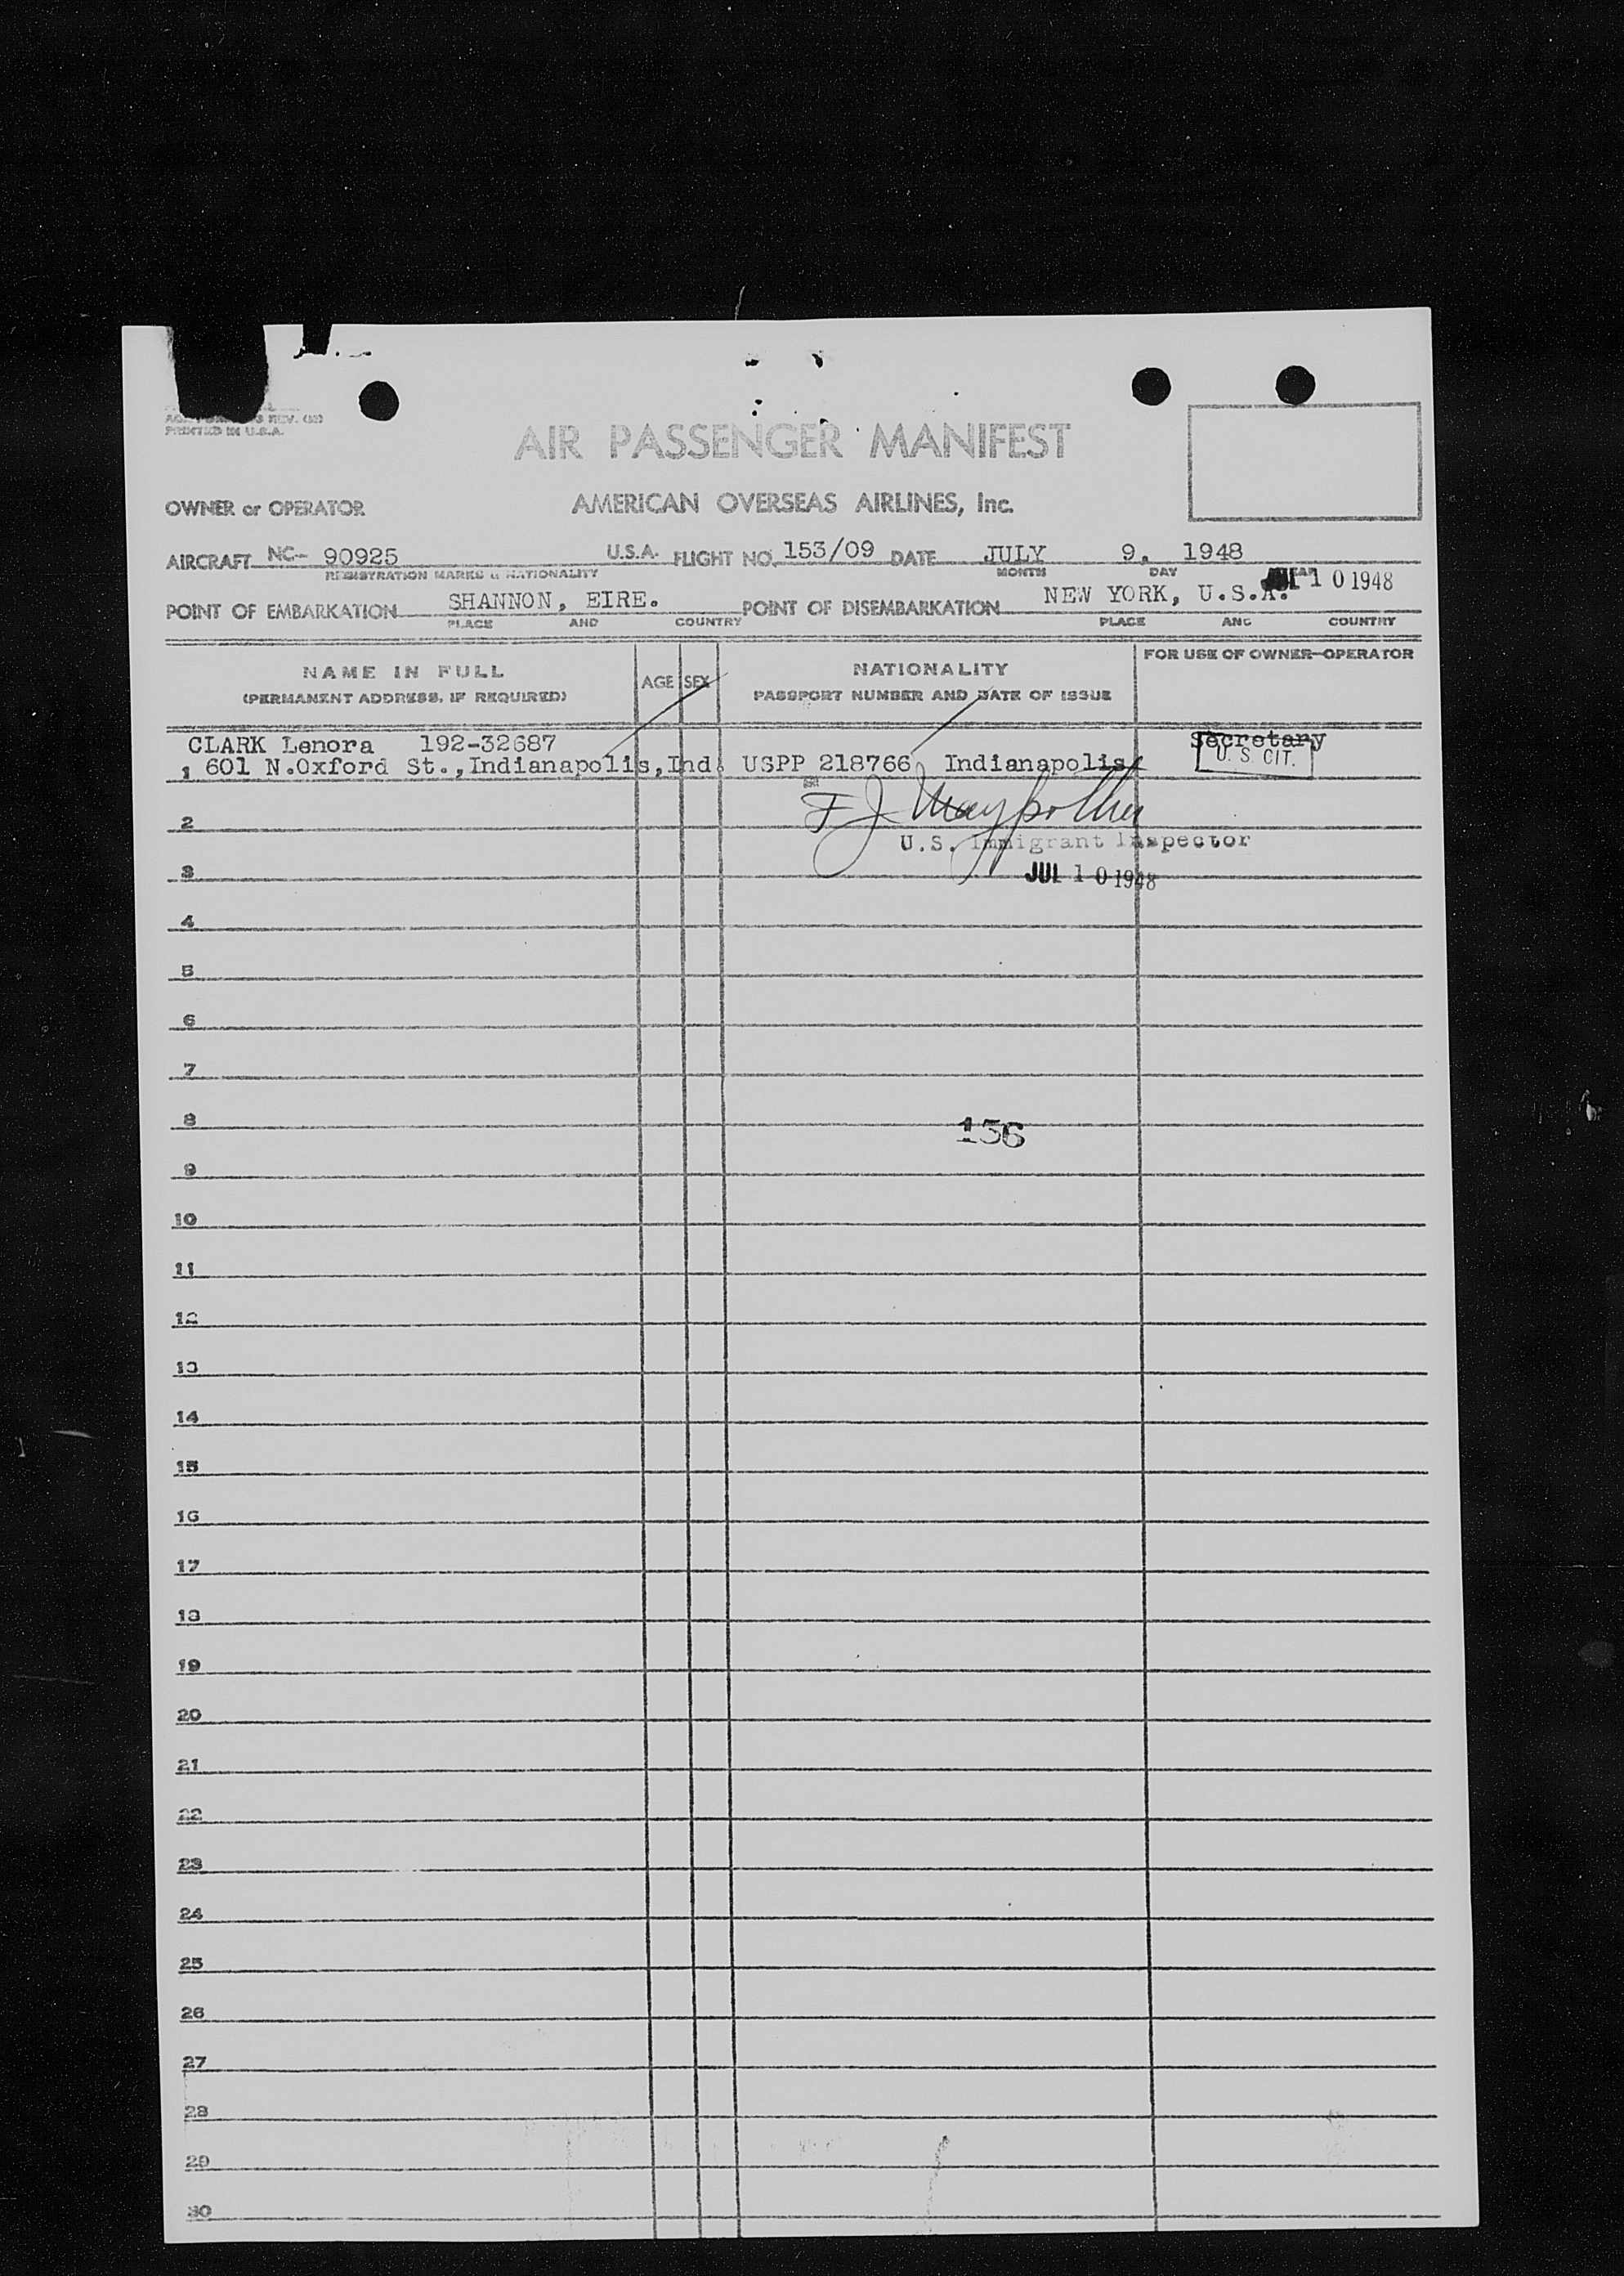 REV.
PRINTED IN U.S.A.
AIR PASSENGER MANIFEST
OWNER or OPERATOR AMERICAN OVERSEAS AIRLINES, Inc.
AIRCRAFT NC- 90925 U.S.A. FLIGHT NO. 153/09 DATE JULY 9, 1948
REGISTRATION MARKS & NATIONALITY MONTH DAY YEAR
JUL 10 1948
POINT OF EMBARKATION SHANNON, EIRE. POINT OF DISEMBARKATION NEW YORK, U.S.A.
PLACE AND COUNTRY PLACE AND COUNTRY
NAME IN FULL
(PERMANENT ADDRESS, IF REQUIRED)
AGE
SEX
NATIONALITY
PASSPORT NUMBER AND DATE OF ISSUE
FOR USE OF OWNER-OPERATOR
CLARK Lenora 192-32687 Secretary
1 601 N.Oxford St.,Indianapolis,Ind. USPP 218766 Indianapolis U. S. CIT.
F J
2
U.S. Immigrant Inspector
3 JUL 10 1948
4
5
6
7
8 156
9
10
11
12
13
14
15
16
17
18
19
20
21
22
23
24
25
26
27
28
29
30